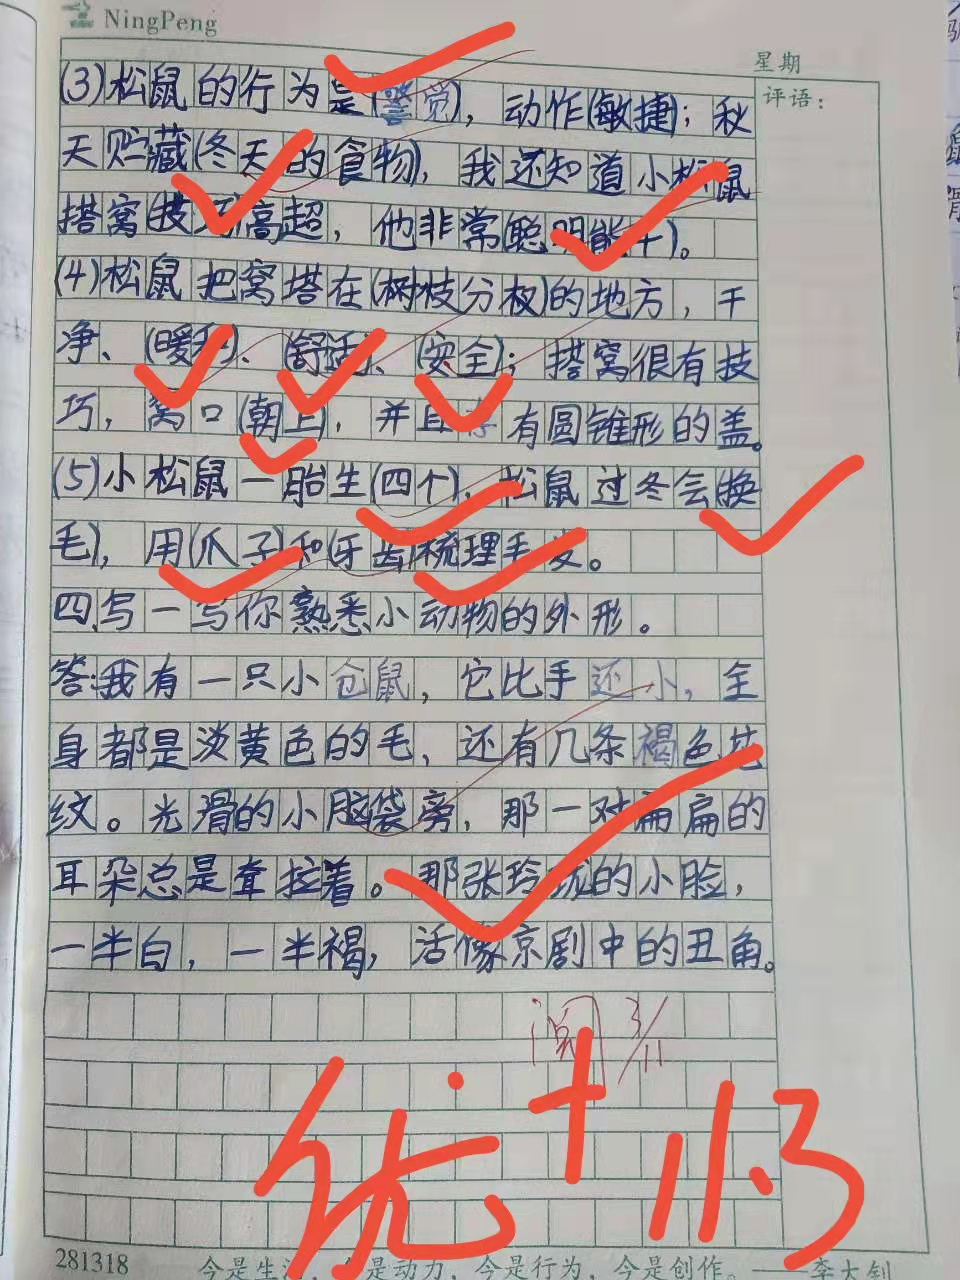 NingPeng
星期
评语：
(3)松鼠的行为是(警觉)，动作(敏捷)；秋
天贮藏(冬天的食物)，我还知道小松鼠
搭窝(技巧高超，他非常(聪明能干)。
(4)松鼠把窝塔在(树枝分杈)的地方，干
净、(暖和)、(舒适)、(安全)；搭窝很有技
巧，窝口(朝上)，并且有圆锥形的盖。
(5)小松鼠一胎生(四个)，松鼠过冬会(换
毛)，用(爪子)和(牙齿)梳理毛发。
四、写一写你熟悉小动物的外形。
答：我有一只小仓鼠，它比手还小，全
身都是淡黄色的毛，还有几条褐色花
纹。光滑的小脑袋旁，那一对扁扁的
耳朵总是耷拉着。那张玲珑的小脸，
一半白，一半褐，活像京剧中的丑角。
阅 3/11
优+ 11.3
281318
今是生活，今是动力，今是行为，今是创作。——李大钊